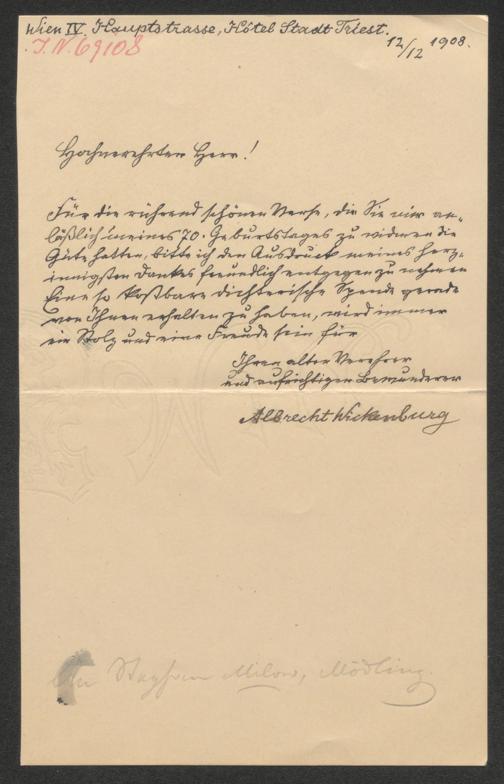 Wien IV. Hauptstrasse, Hôtel Stadt Triest.
12/12 1908.
J.N. 69108
Hochverehrter Herr!
Für die rührend schönen Verse, die Sie mir an-
läßlich meines 70. Geburtstages zu widmen die
Güte hatten, bitte ich den Ausdruck meines herz-
innigsten Dankes freundlich entgegen zu nehmen
Eine so kostbare dichterische Spende gerade
von Ihnen erhalten zu haben, wird immer
ein Stolz und eine Freude sein für
Ihren alten Verehrer
und aufrichtigen Bewunderer
Albrecht Wickenburg
An Stephan Milow, Mödling.